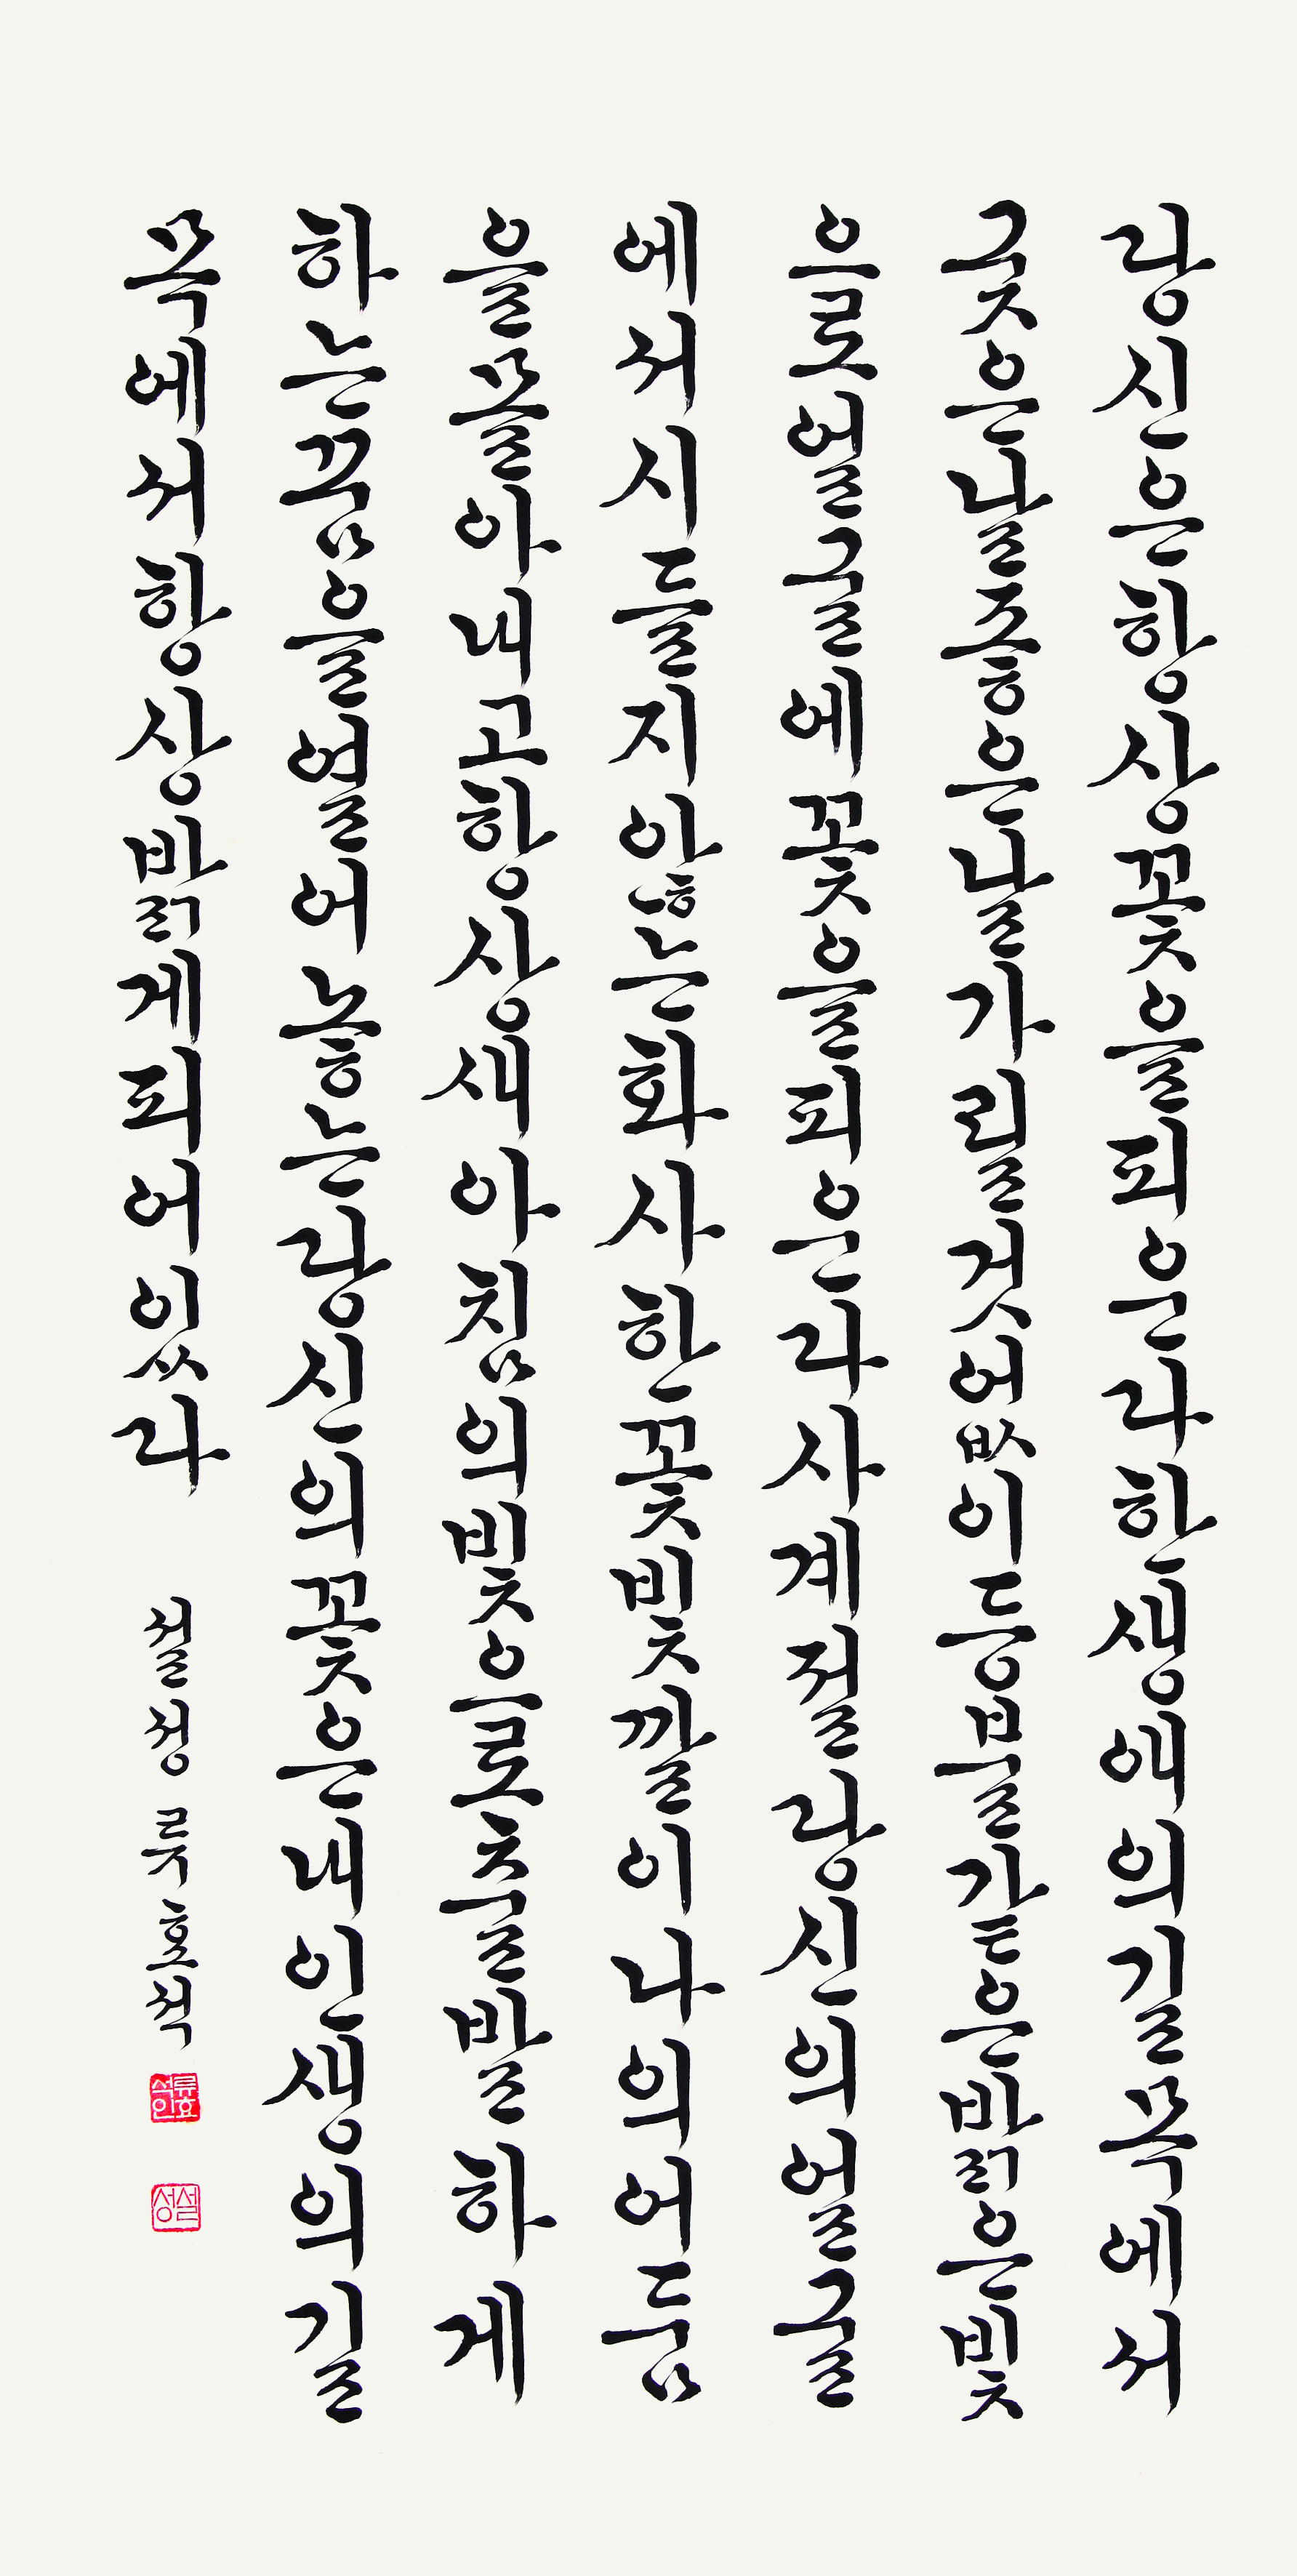 당신은항상꽃을피운다한생애의길목에서
궂은날좋은날가릴것없이등불같은밝은빛
으로얼굴에꽃을피운다사계절당신의얼굴
에서시들지않는화사한꽃빛깔이나의어둠
을몰아내고항상새아침의빛으로출발하게
하는꿈을열어놓는당신의꽃은내인생의길
목에서항상밝게피어있다
설성 류효석
류효석인
설성